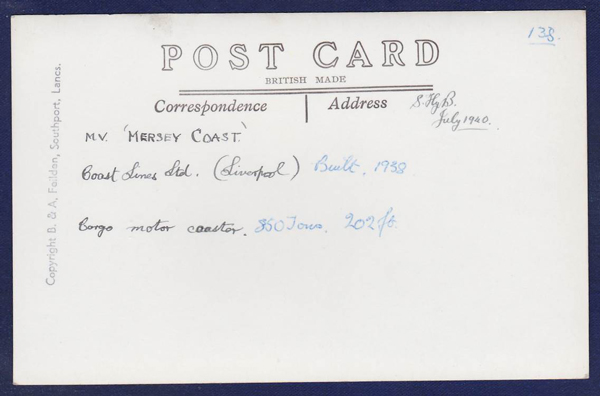 138.
POST CARD
BRITISH MADE
Correspondence
Address
S.Hy.B.
July 1940.
M.V. 'MERSEY COAST.'
Coast Lines Ltd. (Liverpool) Built. 1938
Cargo motor coaster. 850 Tons. 202 ft.
Copyright B. & A. Feilden, Southport, Lancs.